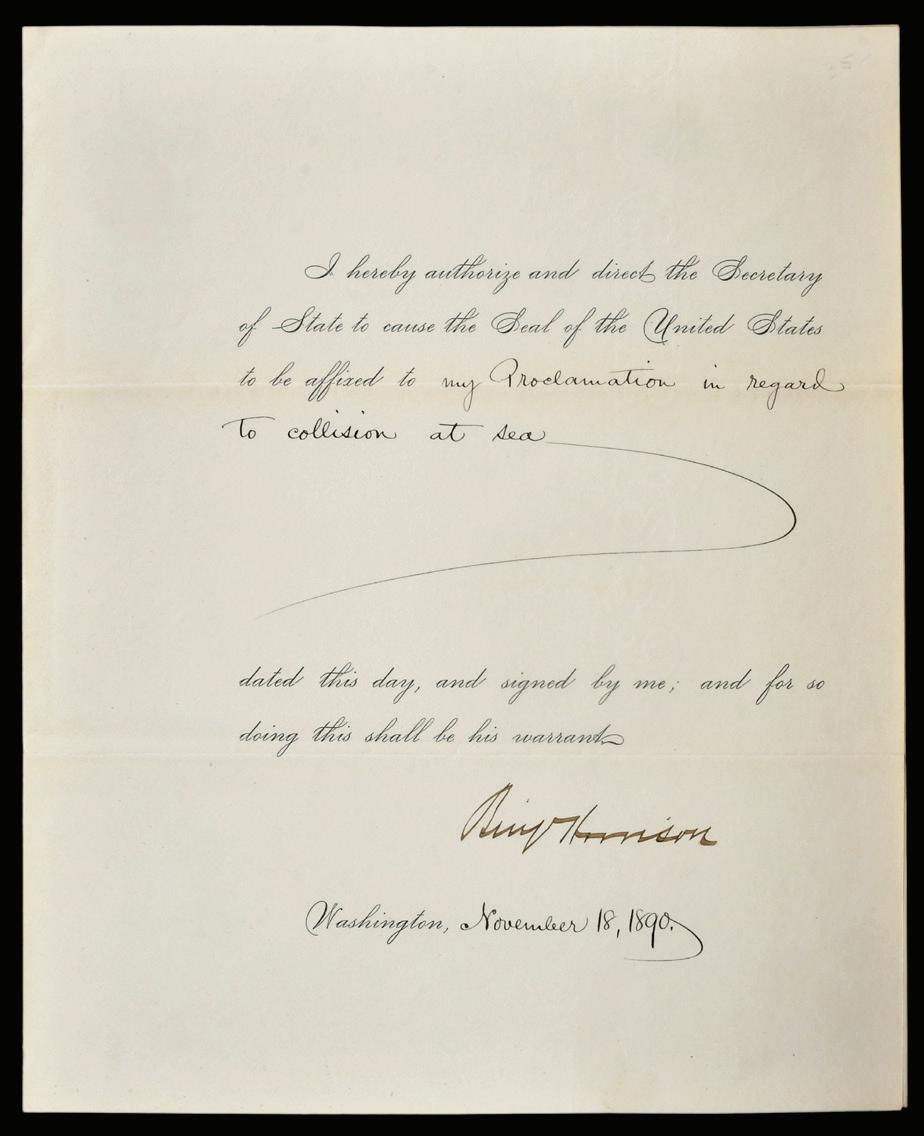 I hereby authorize and direct the Secretary
of State to cause the Seal of the United States
to be affixed to my Proclamation in regard
to collision at sea
dated this day, and signed by me; and for so
doing this shall be his warrant
Benj Harrison
Washington, November 18, 1890.